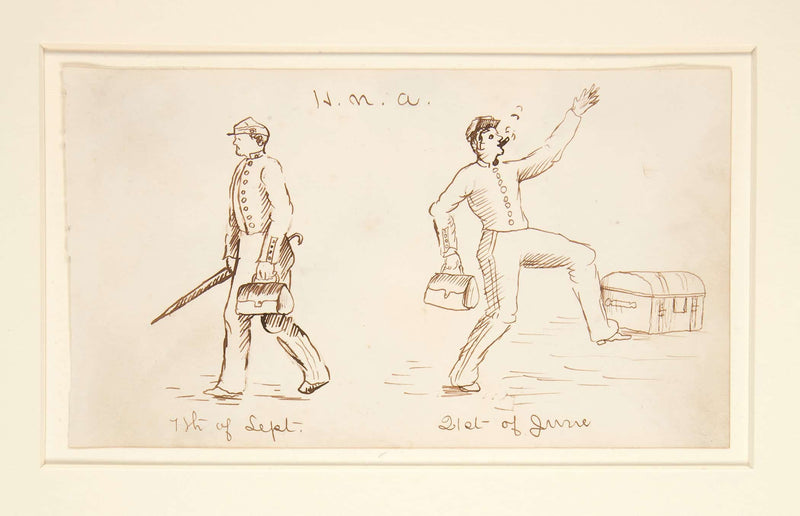 H. n. a.
7th of Sept.
21st of June